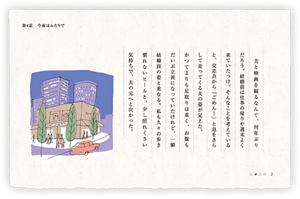 第4話　今夜はふたりで
　夫と映画を観るなんて、何年ぶり
だろう。結婚前は仕事の帰りや週末よく
来ていたっけ。そんなことを考えている
と、交差点から「ごめんー」と息をきら
して走ってくる夫の姿が見えた。
かつてよりも足取りは重く、お腹も
だいぶ立派になっていたけれど、一瞬
結婚前の姿と重なる。私も久々の歩き
慣れないヒールと、少し照れくさい
気持ちで、夫の元へと向かった。
2